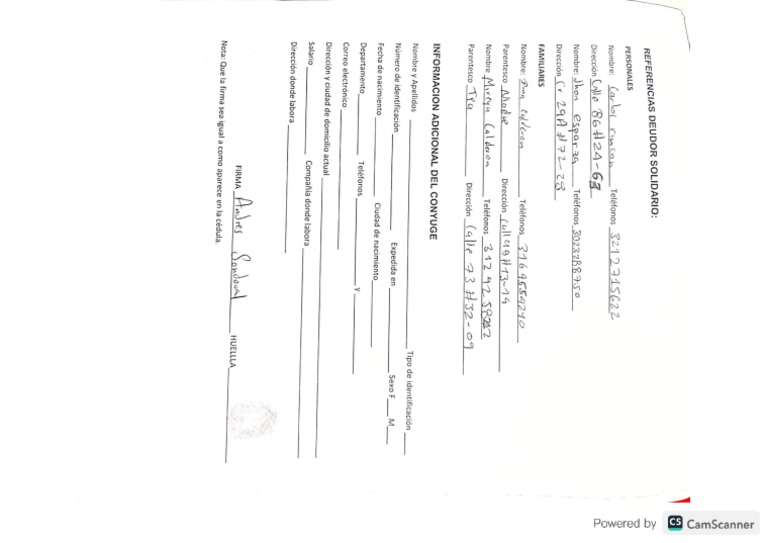 REFERENCIAS DEUDOR SOLIDARIO:
PERSONALES
Nombre: Carlos rincon Teléfonos 3212715622
Dirección Calle 86#24-63
Nombre: Jhon esparza Teléfonos 3023288750
Dirección Cr 29A #72-28
FAMILIARES
Nombre: Ana calderon Teléfonos 3164554240
Parentesco Madre Dirección Call 49#13-19
Nombre Mireya Calderon Teléfonos
Parentesco Tia Dirección Calle 73 #32-09
INFORMACION ADICIONAL DEL CONYUGE
Nombre y Apellidos Tipo de identificación
Número de identificación Expedida en Sexo F M
Fecha de nacimiento Ciudad de nacimiento
Departamento Teléfonos y
Correo electrónico
Dirección y ciudad de domicilio actual
Salario Compañía donde labora
Dirección donde labora
FIRMA Andres Sandoval HUELLLA
Nota: Que la firma sea igual a como aparece en la cédula.
Powered by CS CamScanner